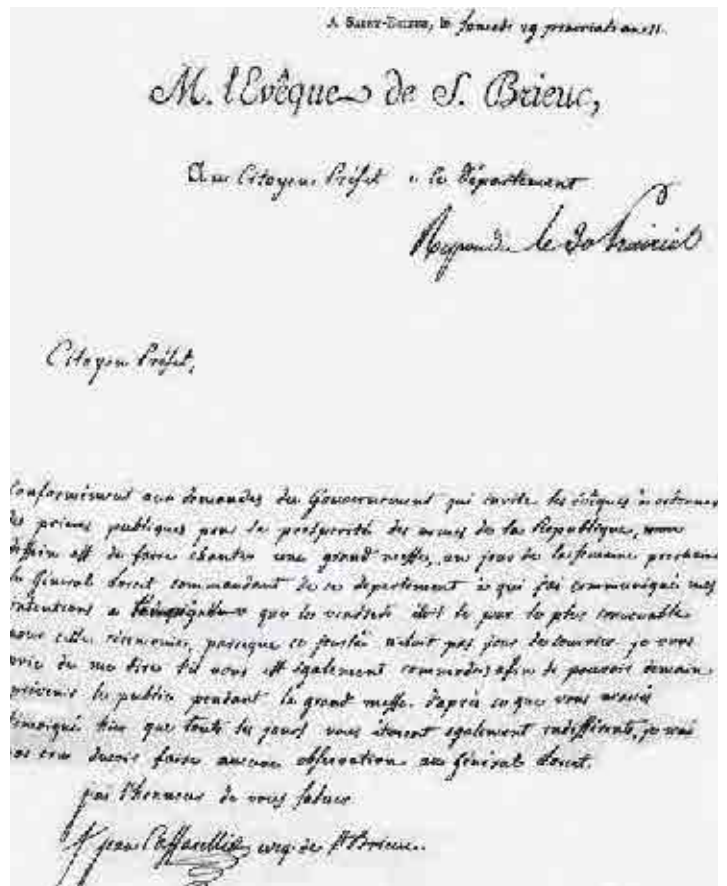 A SAINT-BRIEUC, le samedi 29 prairial an 11.
M. l'Evêque de S. Brieuc,
Au Citoyen Préfet de ce Département
Repondu le 30 Prairial
Citoyen Préfet,
Conformément aux demandes du Gouvernement qui invite les évêques à ordonner
des prieres publiques pour la prosperité des armes de la République, mon
dessein est de faire chanter une grand messe, un jour de la semaine prochaine
le Général commandant de ce departement à qui j'ai communiqué mes
intentions a que les vendredi étoit le jour le plus convenable
pour cette ceremonie, parceque ce n'etoit pas jour de je vous
prie de me dire s'il vous est également commode, afin de pouvoir demain
prévenir le public pendant la grand messe. d'après ce que vous m'aviés
témoigné hier que tous les jours vous étoient egalement indifferents, je n'ai
pas cru devoir faire aucune observation au Général
j'ai l'honneur de vous saluer
jean Caffarelli evêq. de St Brieuc.